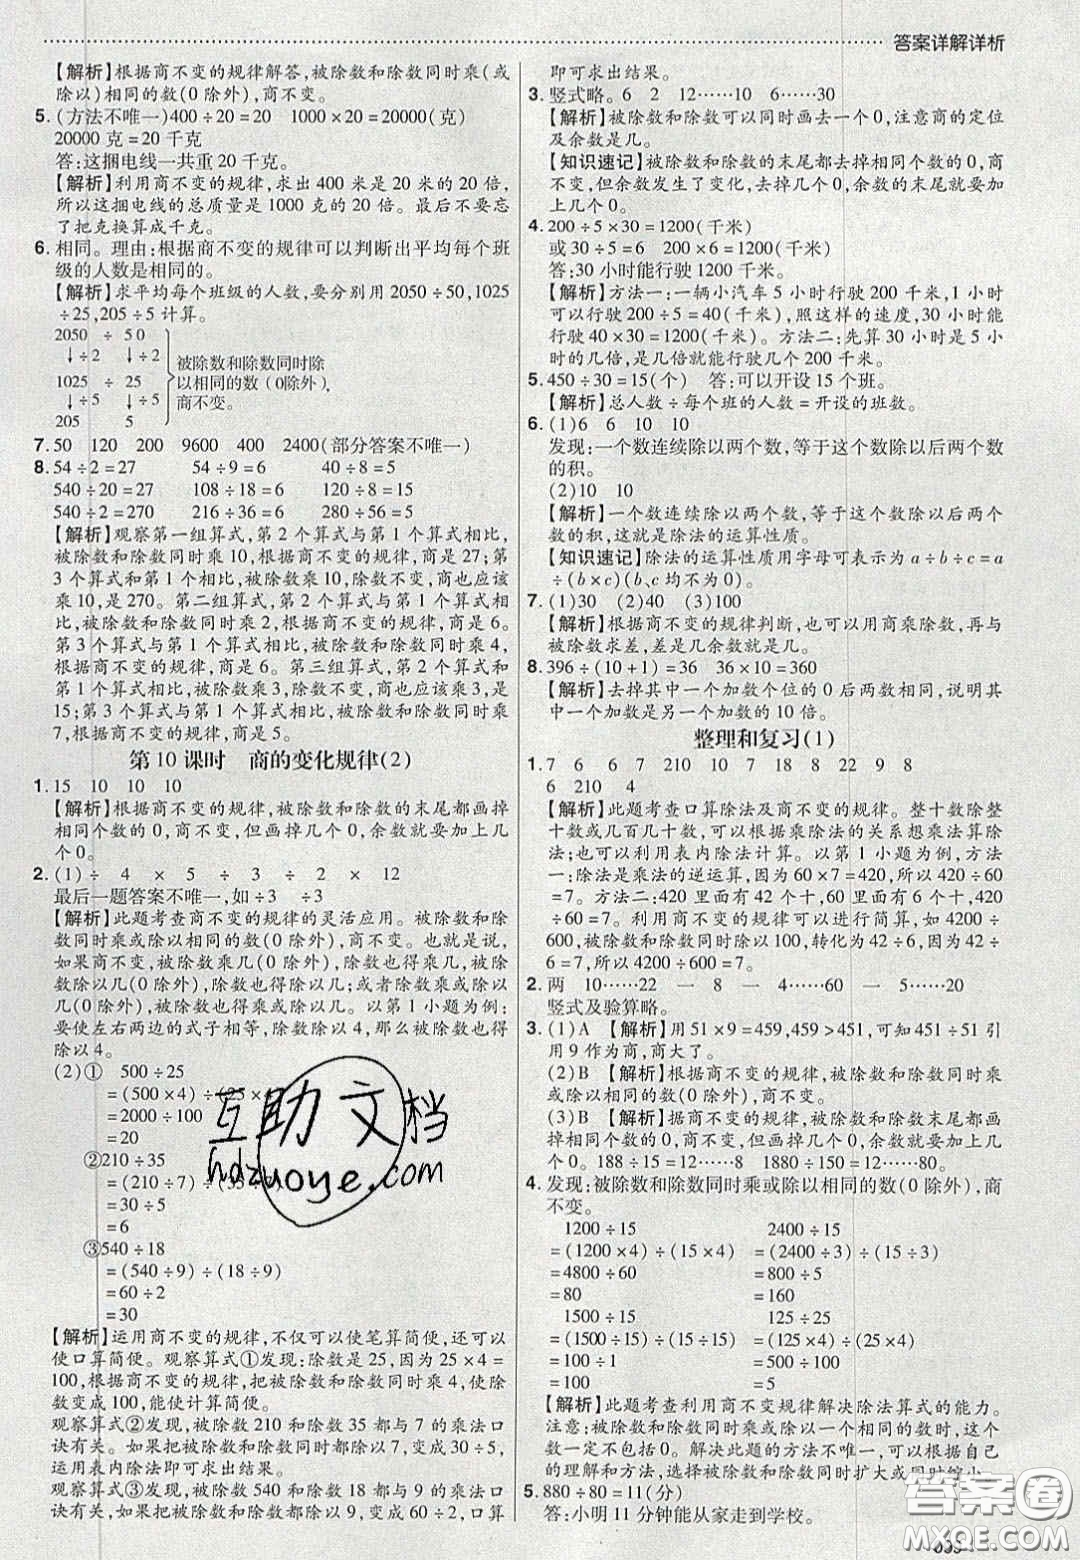 答案详解详析
【解析】根据商不变的规律解答,被除数和除数同时乘(或
除以)相同的数(0除外),商不变。
5. (方法不唯一)400÷20=20 1000×20=20000(克)
20000克=20千克
答:这捆电线一共重20千克。
【解析】利用商不变的规律,求出400米是20米的20倍,
所以这捆电线的总质量是1000克的20倍。最后不要忘
了把克换算成千克。
6. 相同。理由:根据商不变的规律可以判断出平均每个班
级的人数是相同的。
【解析】求平均每个班级的人数,要分别用2050÷50,1025
÷25,205÷5计算。
2050 ÷ 50
↓÷2 ↓÷2
1025 ÷ 25
↓÷5 ↓÷5
205 5
被除数和除数同时除
以相同的数(0除外),
商不变。
7. 50 120 200 9600 400 2400(部分答案不唯一)
8. 54÷2=27 54÷9=6 40÷8=5
540÷20=27 108÷18=6 120÷8=15
540÷2=270 216÷36=6 280÷56=5
【解析】观察第一组算式,第2个算式与第1个算式相比,
被除数和除数同时乘10,根据商不变的规律,商是27;第
3个算式和第1个相比,被除数乘10,除数不变,商也应该
乘10,是270。第二组算式,第2个算式与第1个算式相
比,被除数和除数同时乘2,根据商不变的规律,商是6。
第3个算式与第1个算式相比,被除数和除数同时乘4,
根据商不变的规律,商是6。第三组算式,第2个算式与
第1个算式相比,被除数乘3,除数不变,商也应该乘3,是
15;第3个算式与第1个算式相比,被除数和除数同时乘
7,根据商不变的规律,商是5。
第10课时 商的变化规律(2)
1. 15 10 10 10
【解析】根据商不变的规律,被除数和除数的末尾都画掉
相同个数的0,商不变,但画掉几个0,余数就要加上几
个0。
2. (1)÷ 4 × 5 ÷ 3 ÷ 2 × 12
最后一题答案不唯一,如÷3 ÷3
【解析】此题考查商不变的规律的灵活应用。被除数和除
数同时乘或除以相同的数(0除外),商不变。也就是说,
如果商不变,被除数乘几(0除外),除数也得乘几,被除
数除以几(0除外),除数也得除以几;除数乘或除以
几(0除外),被除数也得乘或除以几。以第1小题为例:
要使左右两边的式子相等,除数除以4,那么被除数也得
除以4。
(2)① 500÷25
=(500×4)÷(25×
=2000÷100
=20
②210÷35
=(210÷7)÷(35
=30÷5
=6
③540÷18
=(540÷9)÷(18÷9)
=60÷2
=30
【解析】运用商不变的规律,不仅可以使笔算简便,还可以
使口算简便。观察算式①发现:除数是25,因为25×4=
100,根据商不变的规律,把被除数和除数同时乘4,使除
数变成100,能使计算简便。
观察算式②发现,被除数210和除数35都与7的乘法口
诀有关。如果把被除数和除数同时都除以7,变成30÷5,
运用表内除法即可求出结果。
观察算式③发现,被除数540和除数18都与9的乘法口
诀有关,如果把被除数和除数同时除以9,变成60÷2,口算
即可求出结果。
3. 竖式略。6 2 12……10 6……30
【解析】被除数和除数可以同时画去一个0,注意商的定位
及余数是几。
【知识速记】被除数和除数的末尾都去掉相同个数的0,商
不变,但余数发生了变化,去掉几个0,余数的末尾就要加
上几个0。
4. 200÷5×30=1200(千米)
或30÷5=6 200×6=1200(千米)
答:30小时能行驶1200千米。
【解析】方法一:一辆小汽车5小时行驶200千米,1小时
可以行驶200÷5=40(千米),照这样的速度,30小时能
行驶40×30=1200(千米)。方法二:先算30小时是5小
时的几倍,是几倍就能行驶几个200千米。
5. 450÷30=15(个) 答:可以开设15个班。
【解析】总人数÷每个班的人数=开设的班数。
6. (1)6 6 10 10
发现:一个数连续除以两个数,等于这个数除以后两个数
的积。
(2)10 10
【解析】一个数连续除以两个数,等于这个数除以后两个
数的积,这就是除法的运算性质。
【知识速记】除法的运算性质用字母可表示为a÷b÷c=a
÷(b×c)(b、c均不为0)。
7. (1)30 (2)40 (3)100
【解析】根据商不变的规律判断,也可以用商乘除数,再与
被除数求差,差是几余数就是几。
8. 396÷(10+1)=36 36×10=360
【解析】去掉其中一个加数个位的0后两数相同,说明其
中一个加数是另一个加数的10倍。
整理和复习(1)
1. 7 6 6 7 210 10 7 18 8 22 9 8
6 210 4
【解析】此题考查口算除法及商不变的规律。整十数除整
十数或几百几十数,可以根据乘除法的关系想乘法算除
法;也可以利用表内除法计算。以第1小题为例,方法
一:除法是乘法的逆运算,因为60×7=420,所以420÷60
=7。方法二:420里面有42个十,60里面有6个十,420
÷60=7。利用商不变的规律可以进行简算,如4200÷
600,被除数和除数同时除以100,转化为42÷6,因为42÷
6=7,所以4200÷600=7。
2. 两 10……22 一 8 一 4……60 一 5……20
竖式及验算略。
3. (1)A 【解析】用51×9=459,459>451,可知451÷51引
用9作为商,商大了。
(2)B 【解析】根据商不变的规律,被除数和除数同时乘
或除以相同的数(0除外),商不变。
(3)B 【解析】据商不变的规律,被除数和除数末尾都画
掉相同个数的0,商不变,但画掉几个0,余数就要加上几
个0。188÷15=12……8 1880÷150=12……80
4. 发现:被除数和除数同时乘或除以相同的数(0除外),商
不变。
1200÷15 2400÷15
=(1200×4)÷(15×4) =(2400÷3)÷(15÷3)
=4800÷60 =800÷5
=80 =160
1500÷15 125÷25
=(1500÷15)÷(15÷15) =(125×4)÷(25×4)
=100÷1 =500÷100
=100 =5
【解析】此题考查利用商不变规律解决除法算式的能力。
注意:被除数和除数同时乘或除以一个相同的数时,这个
数一定不包括0。解决此题的方法不唯一,可以根据自己
的理解和方法,选择被除数和除数同时扩大或同时缩小。
5. 880÷80=11(分)
答:小明11分钟能从家走到学校。
互助文档
hdzuoye.com
答案圈
MXQE.COM